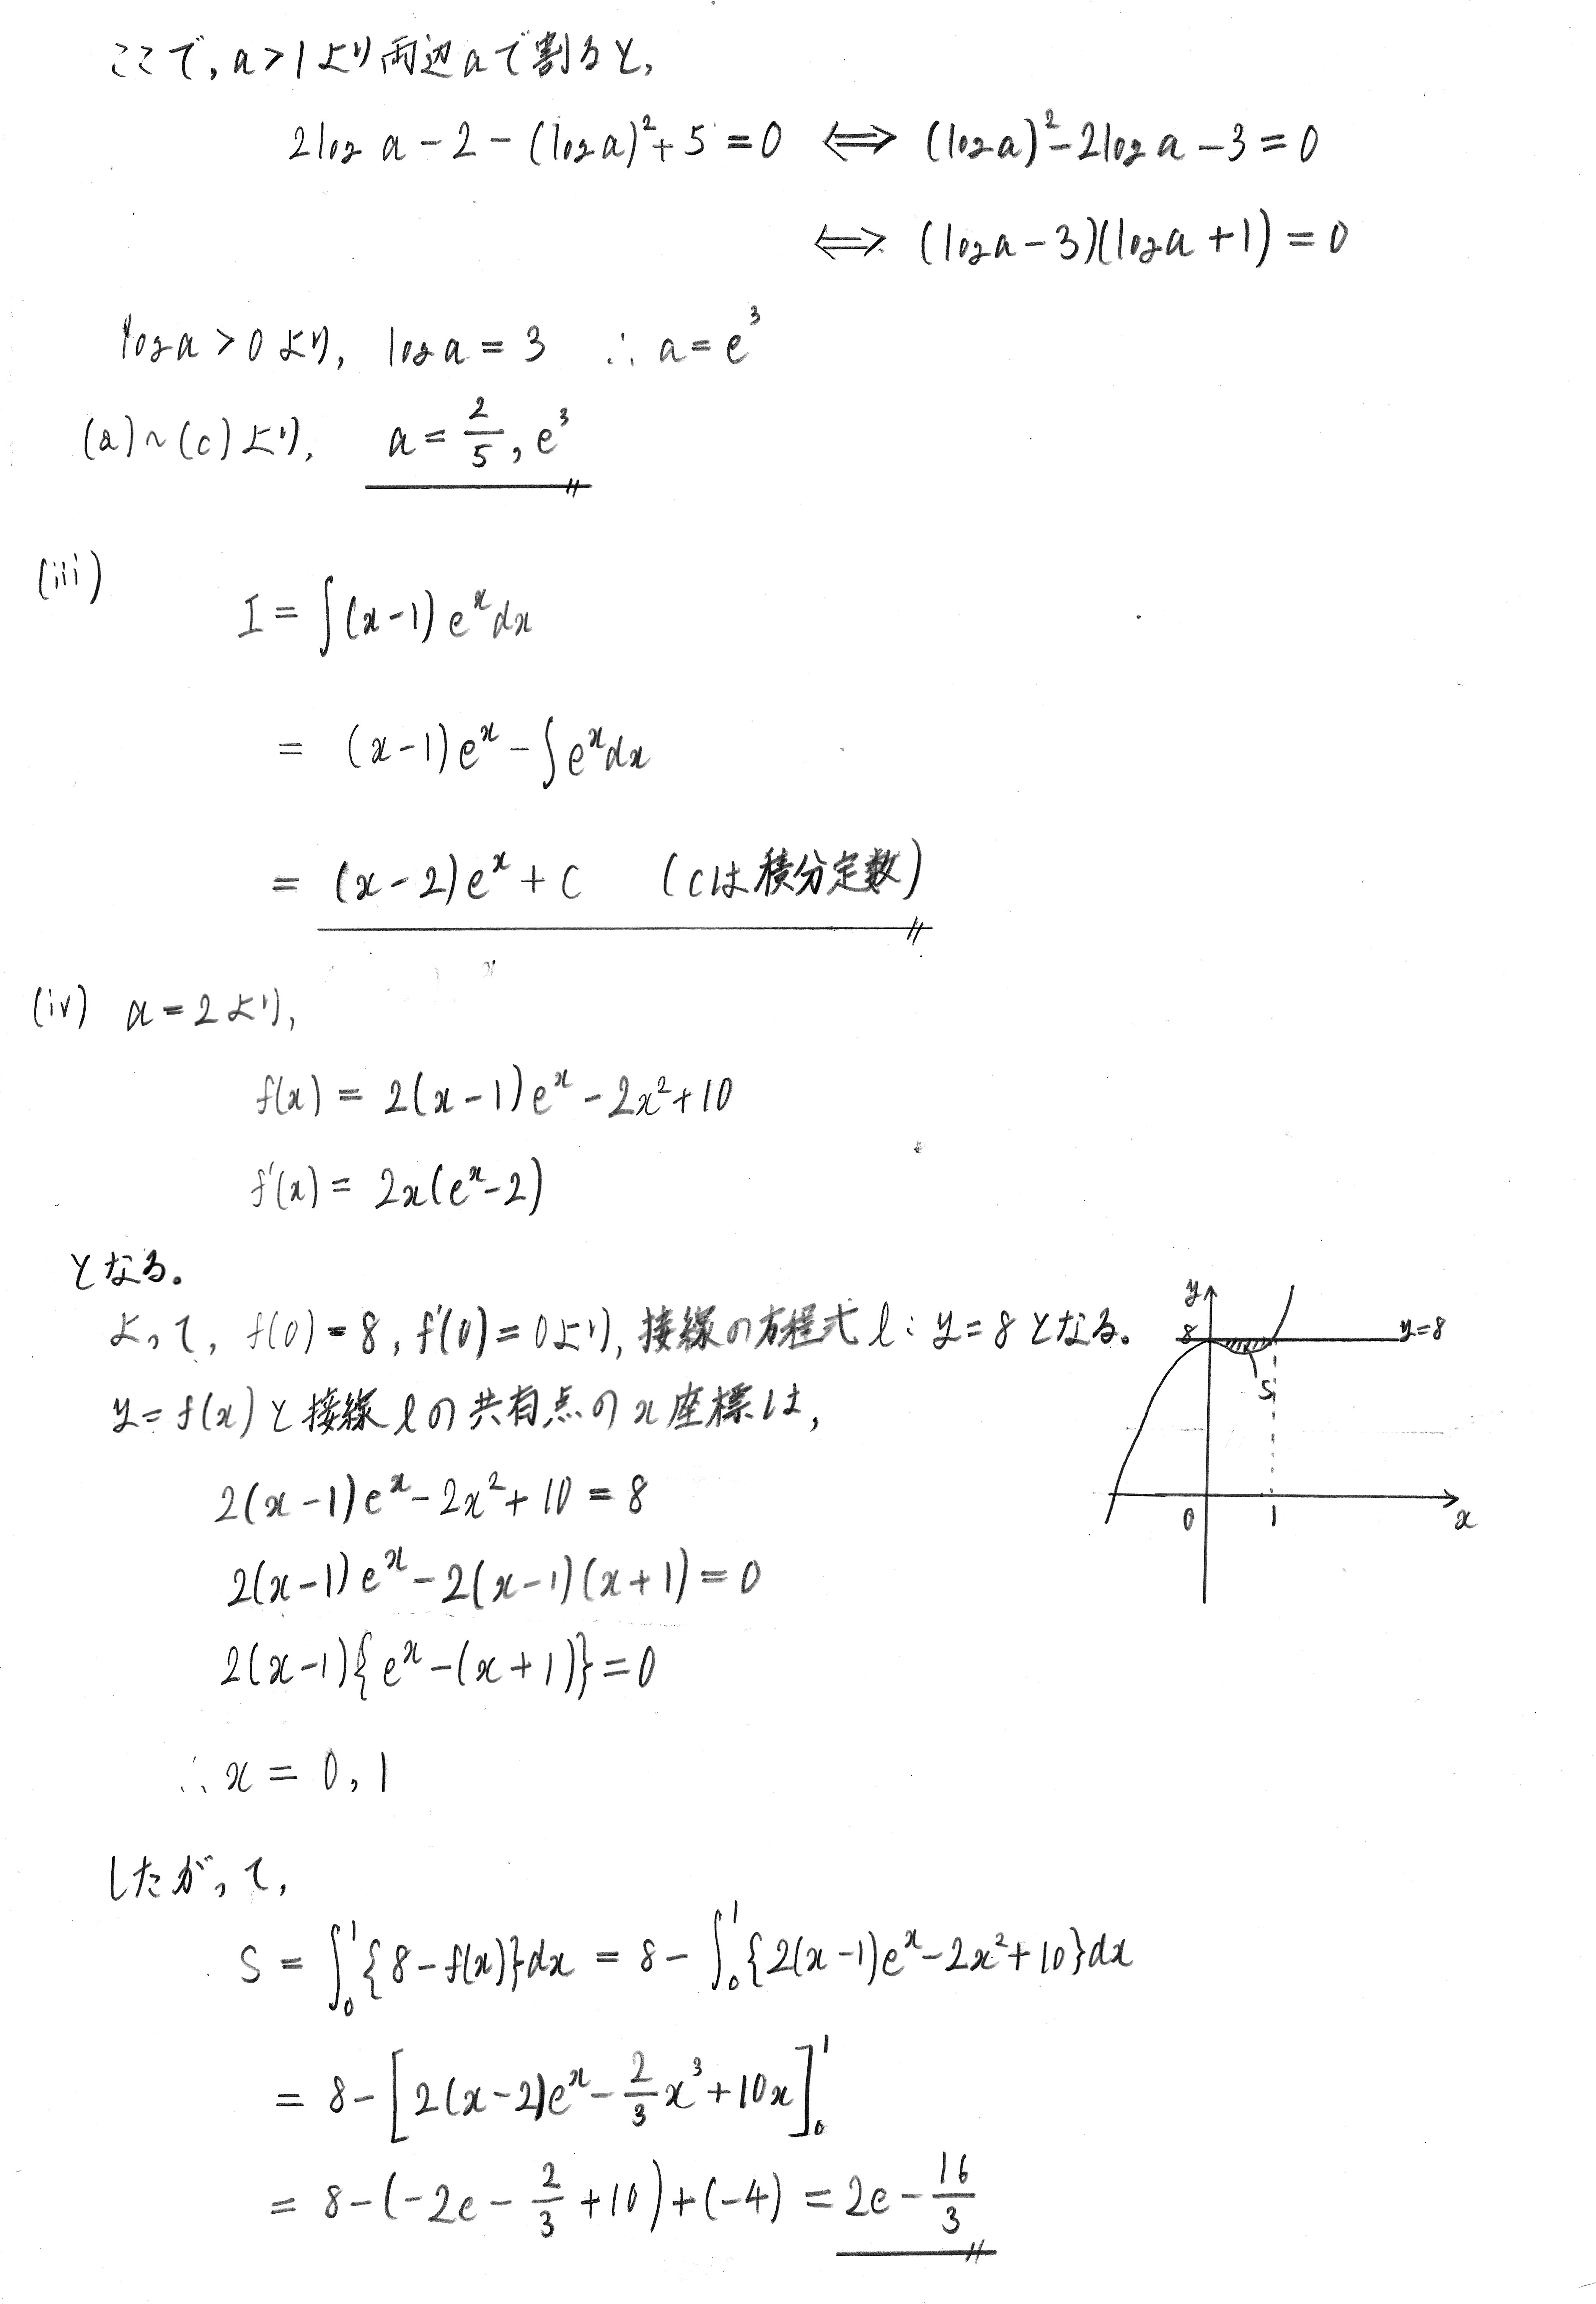 ここで, a > 1 より両辺 a で割ると,
2log a - 2 - (log a)² + 5 = 0 ⟺ (log a)² - 2log a - 3 = 0
⟺ (log a - 3)(log a + 1) = 0
log a > 0 より, log a = 3 ∴ a = e³
(a)~(c) より, a = 2/5, e³
(iii)
I = ∫(x-1)eˣdx
= (x-1)eˣ - ∫eˣdx
= (x-2)eˣ + C (Cは積分定数)
(iv) a = 2 より,
f(x) = 2(x-1)eˣ - 2x² + 10
f'(x) = 2x(eˣ-2)
となる。
よって, f(0) = 8, f'(0) = 0 より, 接線の方程式 l : y = 8 となる。
y = f(x) と接線 l の共有点の x 座標は,
2(x-1)eˣ - 2x² + 10 = 8
2(x-1)eˣ - 2(x-1)(x+1) = 0
2(x-1){eˣ-(x+1)} = 0
∴ x = 0, 1
y
8
y=8
S
0
1
x
したがって,
S = ∫₀¹{8 - f(x)}dx = 8 - ∫₀¹{2(x-1)eˣ - 2x² + 10}dx
= 8 - [2(x-2)eˣ - 2/3 x³ + 10x]₀¹
= 8 - (-2e - 2/3 + 10) + (-4) = 2e - 16/3